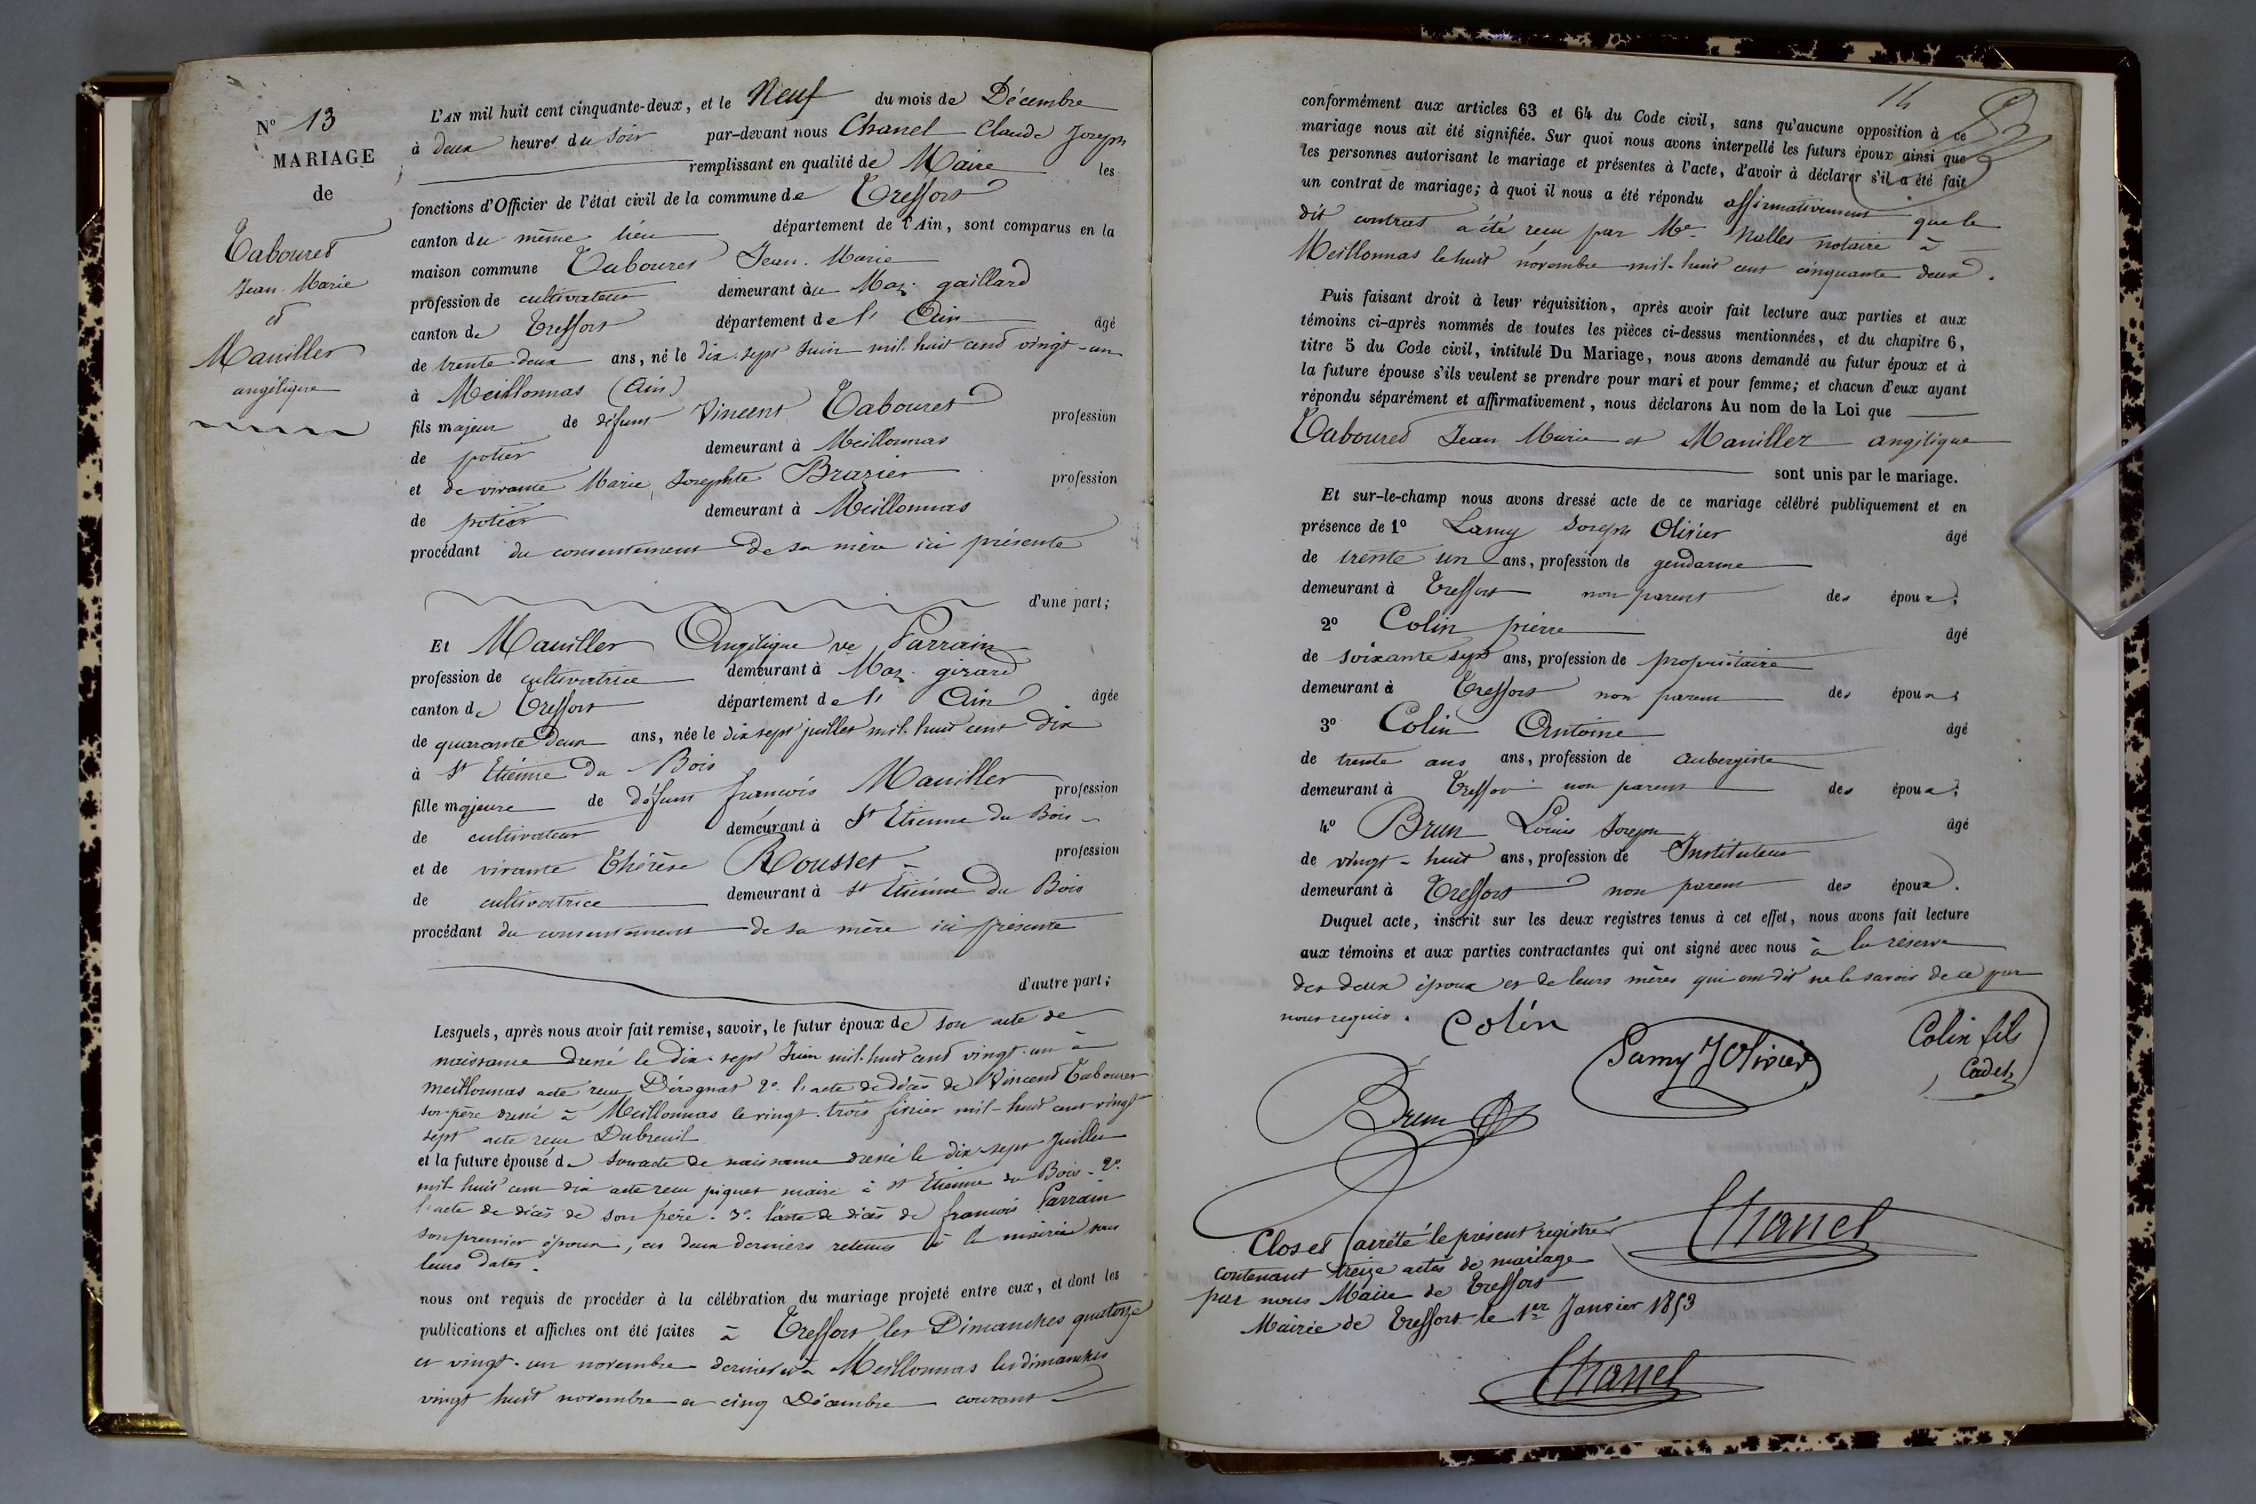 N° 13
MARIAGE
de
Tabouret
Jean-Marie
et
Maniller
angélique
L'AN mil huit cent cinquante-deux, et le Neuf du mois de Décembre
à deux heures du soir par-devant nous Chanel Claude Joseph
remplissant en qualité de Maire les
fonctions d'Officier de l'état civil de la commune de Treffort
canton du même lieu département de l'Ain, sont comparus en la
maison commune Tabouret Jean-Marie
profession de cultivateur demeurant au Maz gaillard
canton de Treffort département de l' Ain âgé
de trente deux ans, né le dix-sept Juin mil-huit cent vingt-un
à Meillonnas (Ain)
fils majeur de défunt Vincent Tabouret profession
de potier demeurant à Meillonnas
et de vivante Marie Josephte Brazier profession
de potier demeurant à Meillonnas
procédant du consentement de sa mère ici présente
d'une part;
Et Maniller Angélique ve Parrain
profession de cultivatrice demeurant à Maz-girard
canton de Treffort département de l' Ain âgée
de quarante deux ans, née le dix sept juillet mil-huit cent dix
à St Etienne du Bois
fille majeure de défunt françois Maniller profession
de cultivateur demeurant à St Etienne du Bois
et de vivante Thérèse Rousset profession
de cultivatrice demeurant à St Etienne du Bois
procédant du consentement de sa mère ici présente
d'autre part;
Lesquels, après nous avoir fait remise, savoir, le futur époux de son acte de
naissance dressé le dix-sept Juin mil-huit cent vingt-un à
meillonnas acte reçu 2° l'acte de décès de Vincent Tabouret
son père dressé à Meillonnas le vingt-trois février mil-huit cent vingt
sept acte reçu Dubreuil
et la future épouse de son acte de naissance dressé le dix-sept Juillet
mil-huit cent dix acte reçu piquet maire à St Etienne du Bois - 2°
l'acte de décès de son père - 3° l'acte de décès de françois Parrain
son premier époux, ces deux derniers retenus à la mairie sous
leurs dates.
nous ont requis de procéder à la célébration du mariage projeté entre eux, et dont les
publications et affiches ont été faites à Treffort les Dimanches quatorze
et vingt-un novembre dernier et à Meillonnas les dimanches
vingt huit novembre et cinq Décembre courant
14
conformément aux articles 63 et 64 du Code civil, sans qu'aucune opposition à ce
mariage nous ait été signifiée. Sur quoi nous avons interpellé les futurs époux ainsi que
les personnes autorisant le mariage et présentes à l'acte, d'avoir à déclarer s'il a été fait
un contrat de mariage; à quoi il nous a été répondu affirmativement que le
dit contrat a été reçu par Me notaire à
Meillonnas le huit novembre mil-huit cent cinquante deux.
Puis faisant droit à leur réquisition, après avoir fait lecture aux parties et aux
témoins ci-après nommés de toutes les pièces ci-dessus mentionnées, et du chapitre 6,
titre 5 du Code civil, intitulé Du Mariage, nous avons demandé au futur époux et à
la future épouse s'ils veulent se prendre pour mari et pour femme; et chacun d'eux ayant
répondu séparément et affirmativement, nous déclarons Au nom de la Loi que
Tabouret Jean Marie et Maniller angélique
sont unis par le mariage.
Et sur-le-champ nous avons dressé acte de ce mariage célébré publiquement et en
présence de 1° Lamy Joseph Olivier âgé
de trente un ans, profession de gendarme
demeurant à Treffort non parent des époux;
2° Colin pierre âgé
de soixante sept ans, profession de propriétaire
demeurant à Treffort non parent des époux;
3° Colin Antoine âgé
de trente ans ans, profession de aubergiste
demeurant à Treffort non parent des époux;
4° Brun Louis Joseph âgé
de vingt-huit ans, profession de Instituteur
demeurant à Treffort non parent des époux.
Duquel acte, inscrit sur les deux registres tenus à cet effet, nous avons fait lecture
aux témoins et aux parties contractantes qui ont signé avec nous à la réserve
des deux époux et de leurs mères qui ont dit ne le savoir de ce par
nous requis.
Colin
Lamy J Olivier
Colin fils
Cadet
Brun
Chanel
Clos et arrêté le présent registre
contenant treize actes de mariage
par nous Maire de Treffort
Mairie de Treffort le 1er Janvier 1853
Chanel